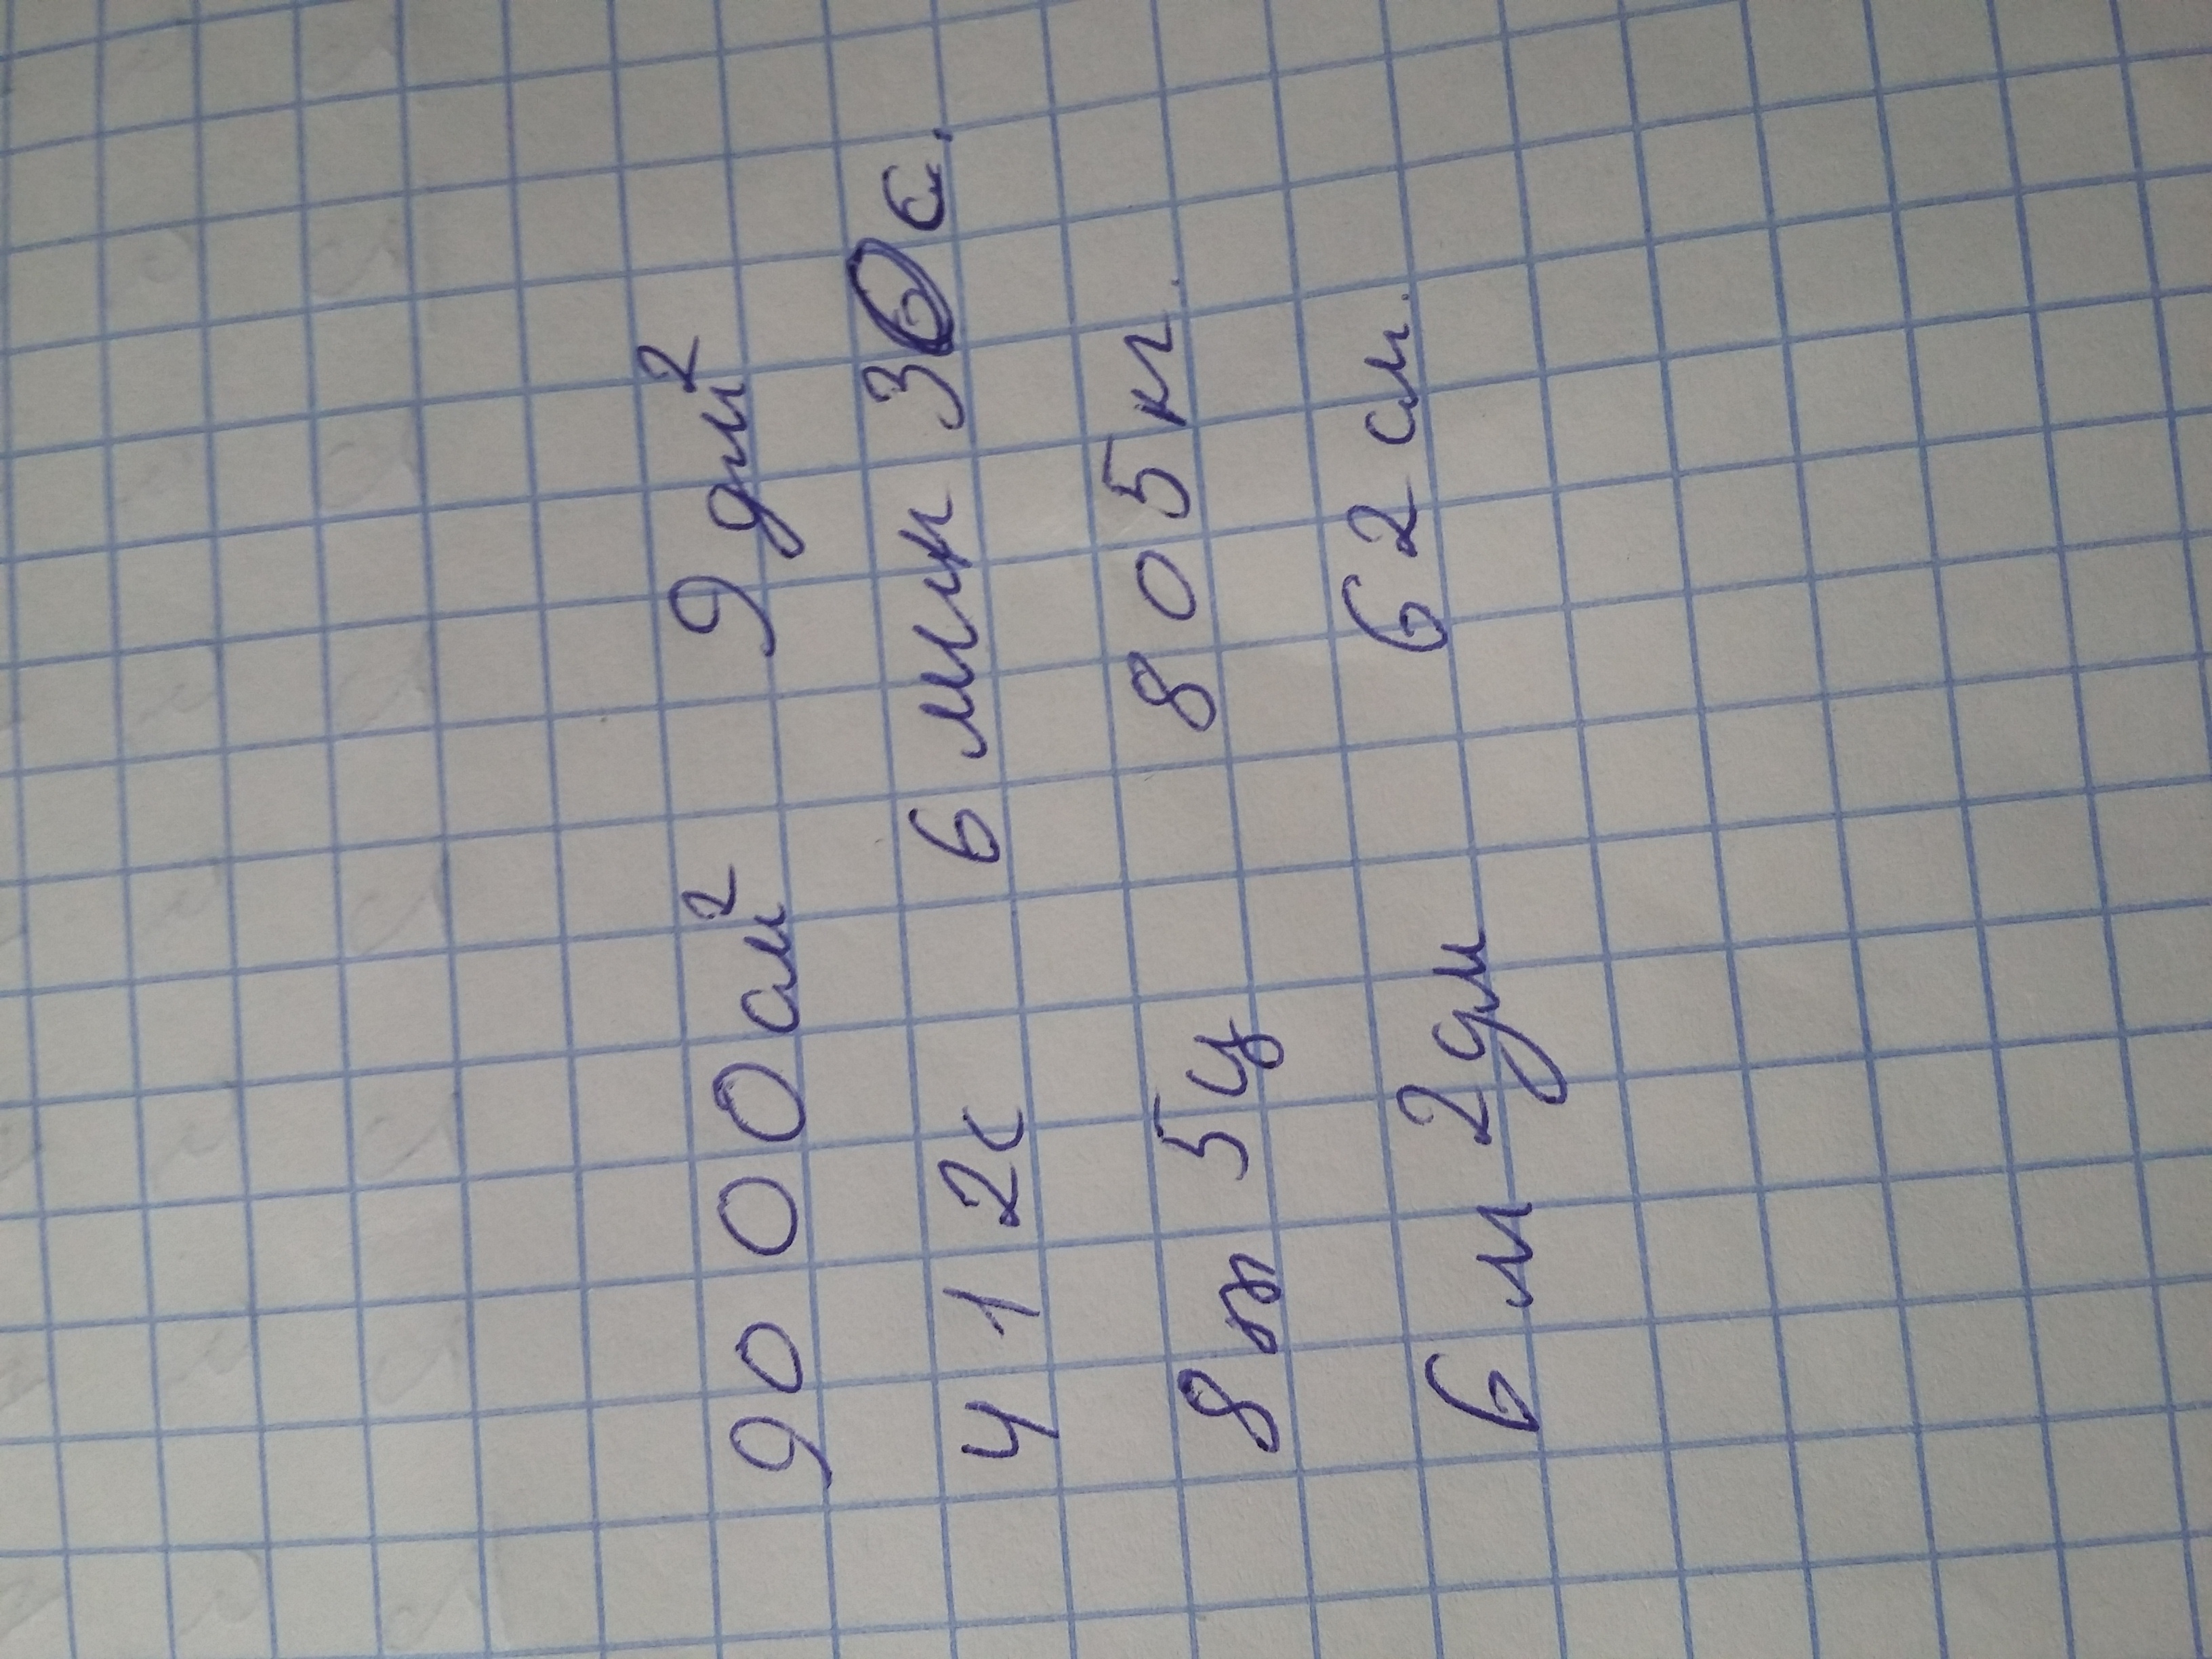 9000 см² 9 дм²
412с 6 мин 30 с.
8т 5ц 805кг.
6 м 2дм 62 см.